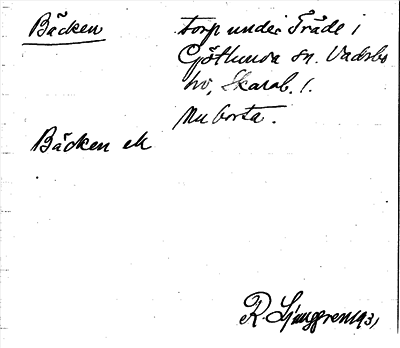 Bäcken torp under Tråde i
Götlunda sn. Vadsbo
hd, Skarab. l.
Nu borta.
Bäcken ek
R. Ljunggren 1931